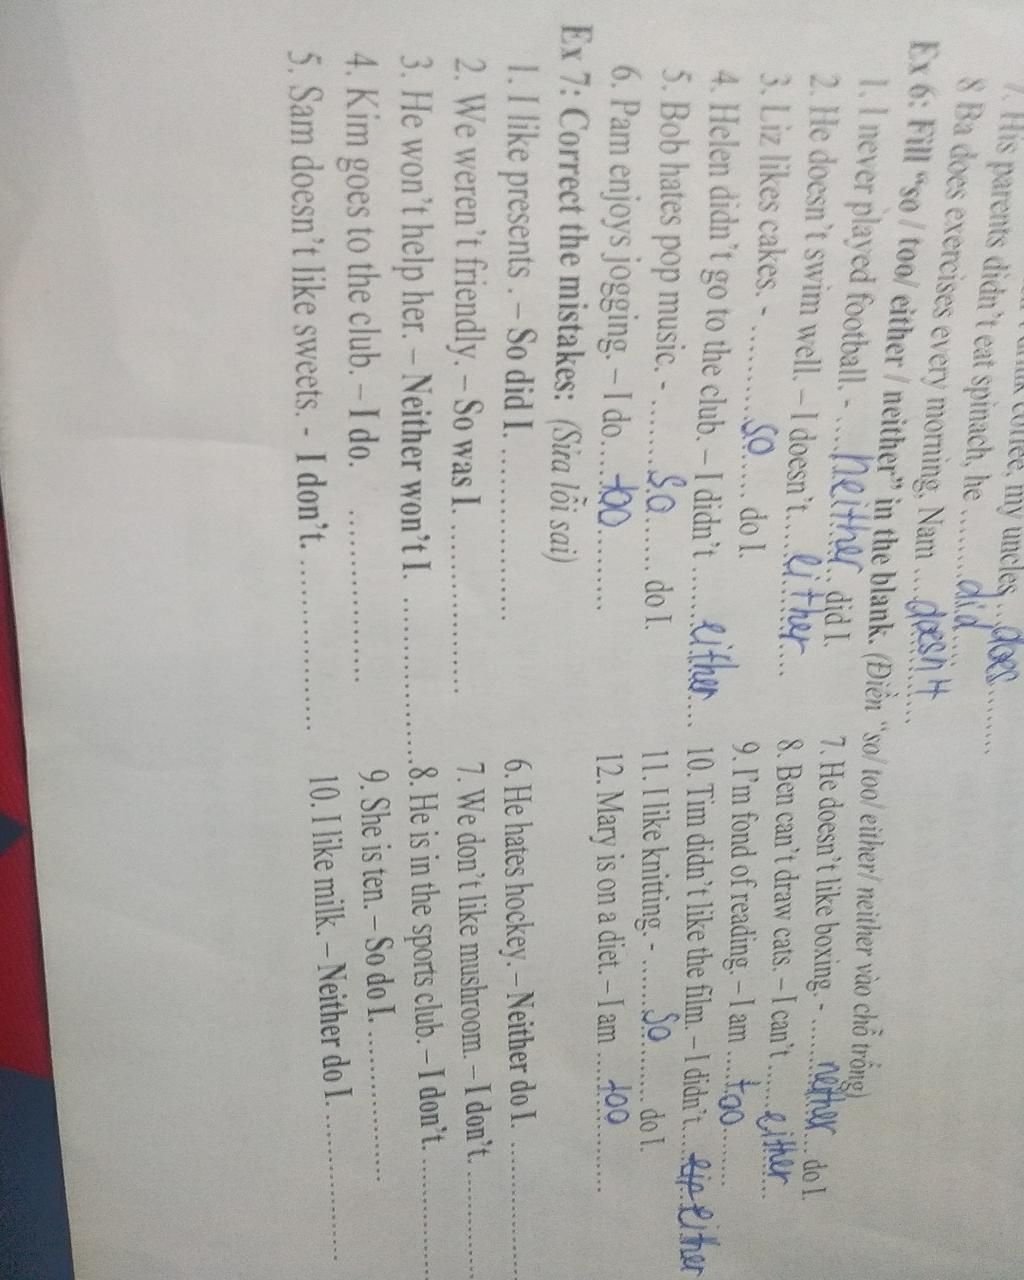 7. His parents didn't eat spinach, he ........did....
my uncles ..does.........
8 Ba does exercises every morning, Nam ...doesn't......
Ex 6: Fill "so / too/ either / neither" in the blank. (Điền "so/ too/ either/ neither vào chỗ trống)
1. I never played football. - ....neither.. did I.
2. He doesn't swim well. – I doesn't....either....
3. Liz likes cakes. - ...........so..... do I.
4. Helen didn't go to the club. – I didn't ......either...
5. Bob hates pop music. - ........so...... do I.
6. Pam enjoys jogging. – I do.....too.........
7. He doesn't like boxing. - .......neither... do I.
8. Ben can't draw cats. – I can't ......either....
9. I'm fond of reading. – I am .....too........
10. Tim didn't like the film. – I didn't....either
11. I like knitting. - .......so......... do I.
12. Mary is on a diet. – I am ......too.........
Ex 7: Correct the mistakes: (Sửa lỗi sai)
1. I like presents . – So did I. ......................
2. We weren't friendly. – So was I. ......................
3. He won't help her. – Neither won't I. ......................
4. Kim goes to the club. – I do. ......................
5. Sam doesn't like sweets. - I don't. ......................
6. He hates hockey. – Neither do I. ......................
7. We don't like mushroom. – I don't. ......................
8. He is in the sports club. – I don't. ......................
9. She is ten. – So do I. ......................
10. I like milk. – Neither do I. ......................